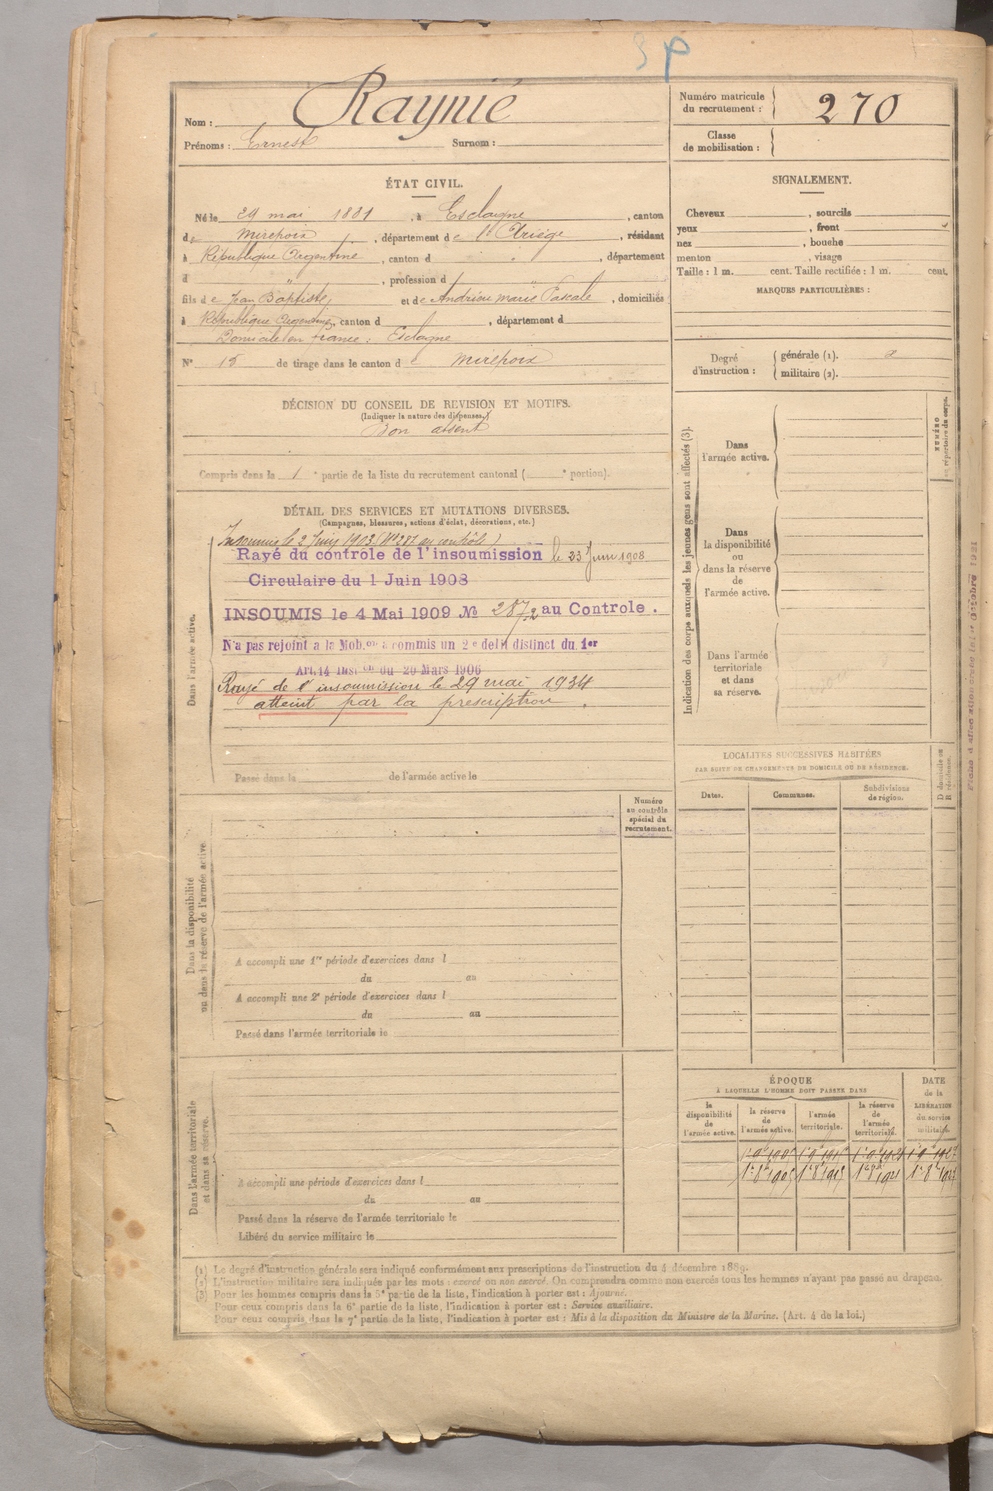 3 P
Nom : Raynié
Prénoms : Ernest Surnom :
Numéro matricule du recrutement : 270
Classe de mobilisation :
ÉTAT CIVIL.
Né le 29 mai 1881, à Esclagne, canton
de Mirepoix, département de l'Ariège, résidant
à République Argentine, canton d , département
d " , profession d "
fils de Jean Baptiste et de Andrieu Marie Pascale, domiciliés
à République Argentine, canton d , département d
Domicile en France : Esclagne
N° 15 de tirage dans le canton de Mirepoix
DÉCISION DU CONSEIL DE REVISION ET MOTIFS.
(Indiquer la nature des dispenses.)
Bon absent
Compris dans la 1e partie de la liste du recrutement cantonal ( e portion).
DÉTAIL DES SERVICES ET MUTATIONS DIVERSES.
(Campagnes, blessures, actions d'éclat, décorations, etc.)
Dans l'armée active.
Insoumis le 2 Juin 1903 (N° 287 au contrôle)
Rayé du contrôle de l'insoumission le 23 Juin 1908
Circulaire du 1 Juin 1908
INSOUMIS le 4 Mai 1909 № 287.2 au Controle.
N'a pas rejoint a la Mob.on a commis un 2e delit distinct du 1er
Art. 14 Inston du 20 Mars 1906
Rayé de l'insoumission le 29 mai 1934
atteint par la prescription.
Passé dans la de l'armée active le
Numéro au contrôle spécial du recrutement.
Dans la disponibilité ou dans la réserve de l'armée active.
A accompli une 1re période d'exercices dans l
du au
A accompli une 2e période d'exercices dans l
du au
Passé dans l'armée territoriale le
Dans l'armée territoriale et dans sa réserve.
A accompli une période d'exercices dans l
du au
Passé dans la réserve de l'armée territoriale le
Libéré du service militaire le
SIGNALEMENT.
Cheveux , sourcils
yeux , front
nez , bouche
menton , visage
Taille : 1 m. cent. Taille rectifiée : 1 m. cent.
MARQUES PARTICULIÈRES :
Degré d'instruction : générale (1). a
militaire (2).
Indication des corps auxquels les jeunes gens sont affectés (3).
NUMÉRO au répertoire du corps.
Dans l'armée active.
Dans la disponibilité ou dans la réserve de l'armée active.
Dans l'armée territoriale et dans sa réserve.
LOCALITÉS SUCCESSIVES HABITÉES
PAR SUITE DE CHANGEMENTS DE DOMICILE OU DE RÉSIDENCE.
Dates. Communes. Subdivisions de région. D domicile ou R résidence.
ÉPOQUE
À LAQUELLE L'HOMME DOIT PASSER DANS
DATE de la LIBÉRATION du service militaire.
la disponibilité de l'armée active.
la réserve de l'armée active.
l'armée territoriale.
la réserve de l'armée territoriale.
(1) Le degré d'instruction générale sera indiqué conformément aux prescriptions de l'instruction du 4 décembre 1889.
(2) L'instruction militaire sera indiquée par les mots : exercé ou non exercé. On comprendra comme non exercés tous les hommes n'ayant pas passé au drapeau.
(3) Pour les hommes compris dans la 5e partie de la liste, l'indication à porter est : Ajourné.
Pour ceux compris dans la 6e partie de la liste, l'indication à porter est : Service auxiliaire.
Pour ceux compris dans la 7e partie de la liste, l'indication à porter est : Mis à la disposition du Ministre de la Marine. (Art. 4 de la loi.)